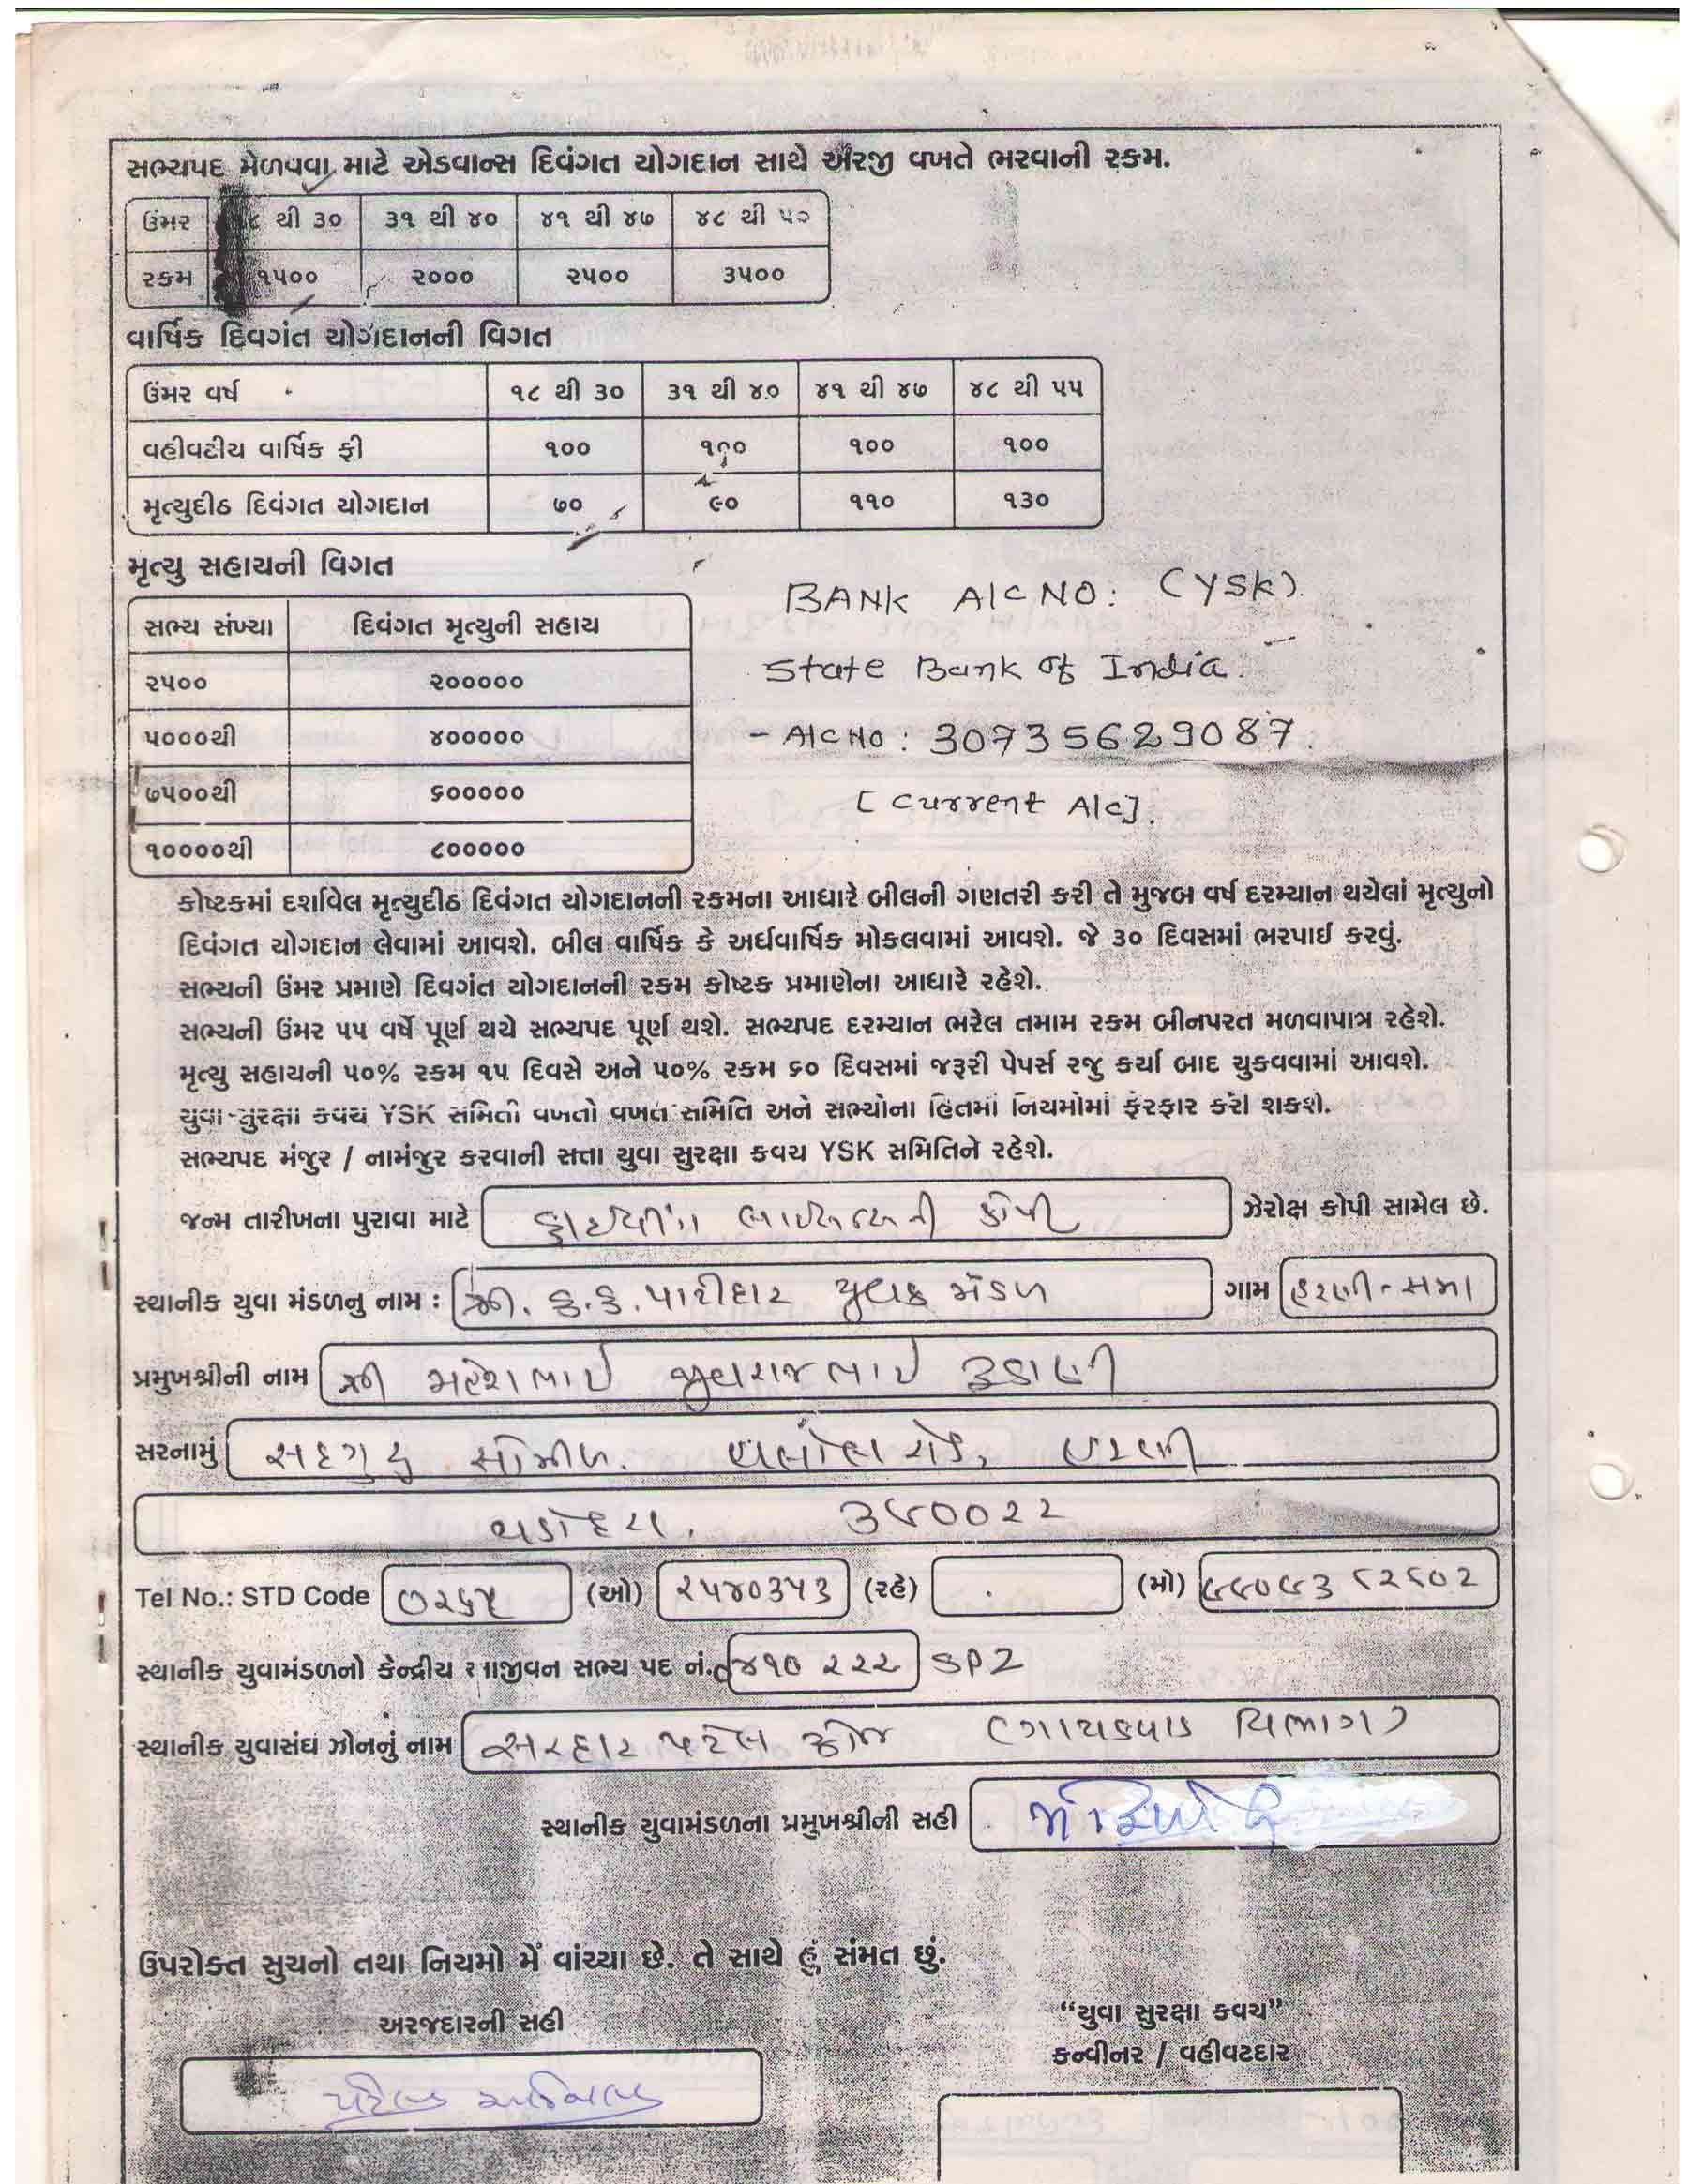 સભ્યપદ મેળવવા માટે એડવાન્સ દિવંગત યોગદાન સાથે અરજી વખતે ભરવાની રકમ.
ઉંમર ૧૮ થી ૩૦ ૩૧ થી ૪૦ ૪૧ થી ૪૭ ૪૮ થી ૫૦
રકમ ૧૫૦૦ ૨૦૦૦ ૨૫૦૦ ૩૫૦૦
વાર્ષિક દિવગંત યોગદાનની વિગત
ઉંમર વર્ષ ૧૮ થી ૩૦ ૩૧ થી ૪૦ ૪૧ થી ૪૭ ૪૮ થી ૫૫
વહીવટીય વાર્ષિક ફી ૧૦૦ ૧૦૦ ૧૦૦ ૧૦૦
મૃત્યુદીઠ દિવંગત યોગદાન ૭૦ ૯૦ ૧૧૦ ૧૩૦
મૃત્યુ સહાયની વિગત
BANK A/C NO: (YSK).
સભ્ય સંખ્યા દિવંગત મૃત્યુની સહાય
State Bank of India.
૨૫૦૦ ૨૦૦૦૦૦
૫૦૦૦થી ૪૦૦૦૦૦
- A/C NO: 30735629087.
૭૫૦૦થી ૬૦૦૦૦૦
[Current A/C].
૧૦૦૦૦થી ૮૦૦૦૦૦
કોષ્ટકમાં દર્શાવેલ મૃત્યુદીઠ દિવંગત યોગદાનની રકમના આધારે બીલની ગણતરી કરી તે મુજબ વર્ષ દરમ્યાન થયેલાં મૃત્યુનો
દિવંગત યોગદાન લેવામાં આવશે. બીલ વાર્ષિક કે અર્ધવાર્ષિક મોકલવામાં આવશે. જે ૩૦ દિવસમાં ભરપાઈ કરવું.
સભ્યની ઉંમર પ્રમાણે દિવગંત યોગદાનની રકમ કોષ્ટક પ્રમાણેના આધારે રહેશે.
સભ્યની ઉંમર ૫૫ વર્ષે પૂર્ણ થયે સભ્યપદ પૂર્ણ થશે. સભ્યપદ દરમ્યાન ભરેલ તમામ રકમ બીનપરત મળવાપાત્ર રહેશે.
મૃત્યુ સહાયની ૫૦% રકમ ૧૫ દિવસે અને ૫૦% રકમ ૬૦ દિવસમાં જરૂરી પેપર્સ રજુ કર્યા બાદ ચુકવવામાં આવશે.
યુવા સુરક્ષા કવચ YSK સમિતી વખતો વખત સમિતિ અને સભ્યોના હિતમાં નિયમોમાં ફેરફાર કરી શકશે.
સભ્યપદ મંજુર / નામંજુર કરવાની સત્તા યુવા સુરક્ષા કવચ YSK સમિતિને રહેશે.
જન્મ તારીખના પુરાવા માટે કોપી ઝેરોક્ષ કોપી સામેલ છે.
સ્થાનીક યુવા મંડળનુ નામ : શ્રી. ક.ક. પાટીદાર યુવક મંડળ ગામ હરણી - સમા
પ્રમુખશ્રીની નામ શ્રી મહેશભાઈ જીવરાજભાઈ રૂડાણી
સરનામું સદગુરુ સોમીલ. રોડ, હરણી
વડોદરા. ૩૯૦૦૨૨
Tel No.: STD Code ૦૨૬૫ (ઓ) ૨૫૪૦૩૫૩ (રહે) (મો) ૯૯૦૯૩ ૮૨૬૦૨
સ્થાનીક યુવામંડળનો કેન્દ્રીય આજીવન સભ્ય પદ નં. ૪૧૦ ૨૨૨ SPZ
સ્થાનીક યુવાસંઘ ઝોનનું નામ સરદાર પટેલ ઝોન (ગાયકવાડ વિભાગ)
સ્થાનીક યુવામંડળના પ્રમુખશ્રીની સહી
ઉપરોક્ત સુચનો તથા નિયમો મેં વાંચ્યા છે. તે સાથે હું સંમત છું.
અરજદારની સહી
“યુવા સુરક્ષા કવચ”
કન્વીનર / વહીવટદાર
પટેલ